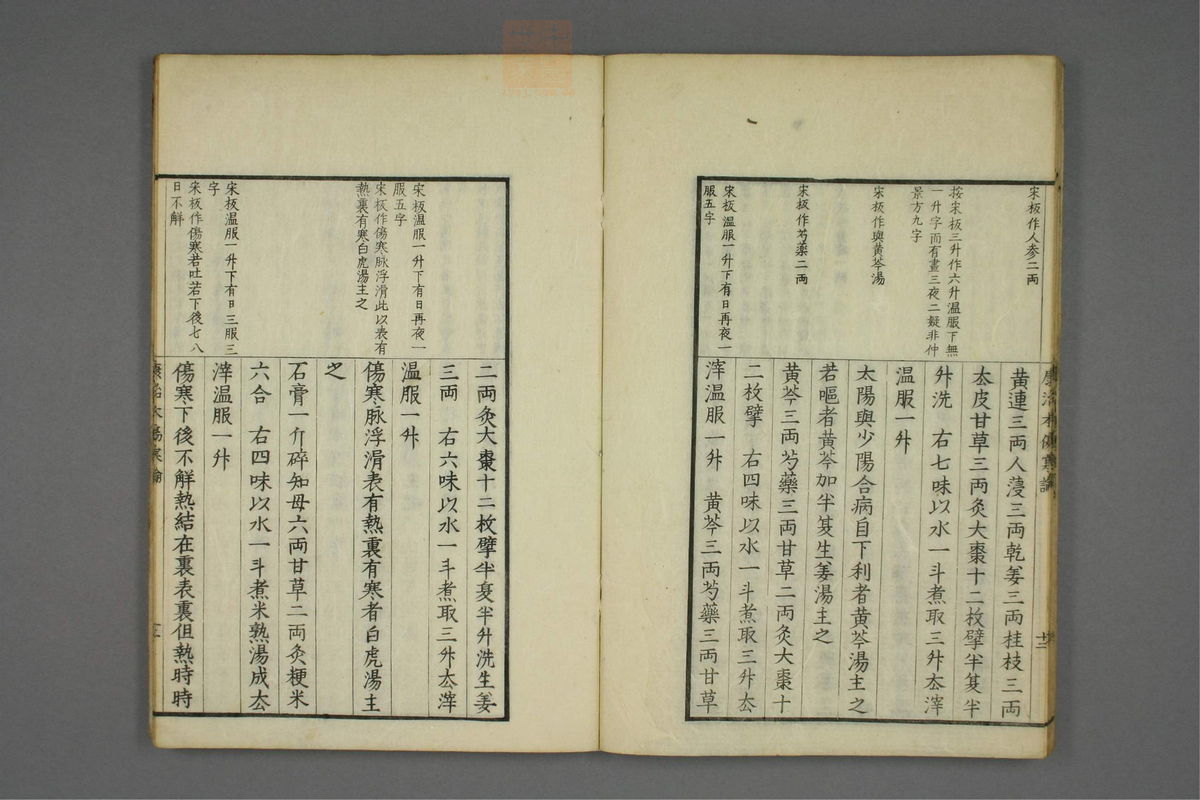 宋板作人参二両
按宋板三升作六升温服下無
一升字而有晝三夜二疑非仲
景方九字
宋板作與黄芩湯
宋板作芍藥二両
宋板温服一升下有日再夜一
服五字
黄連三両人蓡三両乾姜三両桂枝三両
厺皮甘草三両灸大棗十二枚擘半夏半
升洗　右七味以水一斗煮取三升厺滓
温服一升
太陽與少陽合病自下利者黄芩湯主之
若嘔者黄芩加半夏生姜湯主之
黄芩三両芍藥三両甘草二両灸大棗十
二枚擘　右四味以水一斗煮取三升厺
滓温服一升　黄芩三両芍藥三両甘草
宋板温服一升下有日再夜一
服五字
宋板作傷寒脉浮滑此以表有
熱裏有寒白虎湯主之
宋板温服一升下有日三服三
字
宋板作傷寒若吐若下後七八
日不解
二両灸大棗十二枚擘半夏半升洗生姜
三両　右六味以水一斗煮取三升厺滓
温服一升
傷寒脉浮滑表有熱裏有寒者白虎湯主
之
石膏一斤碎知母六両甘草二両灸粳米
六合　右四味以水一斗煮米熟湯成厺
滓温服一升
傷寒下後不解熱結在裏表裏但熱時時
康治本傷寒論